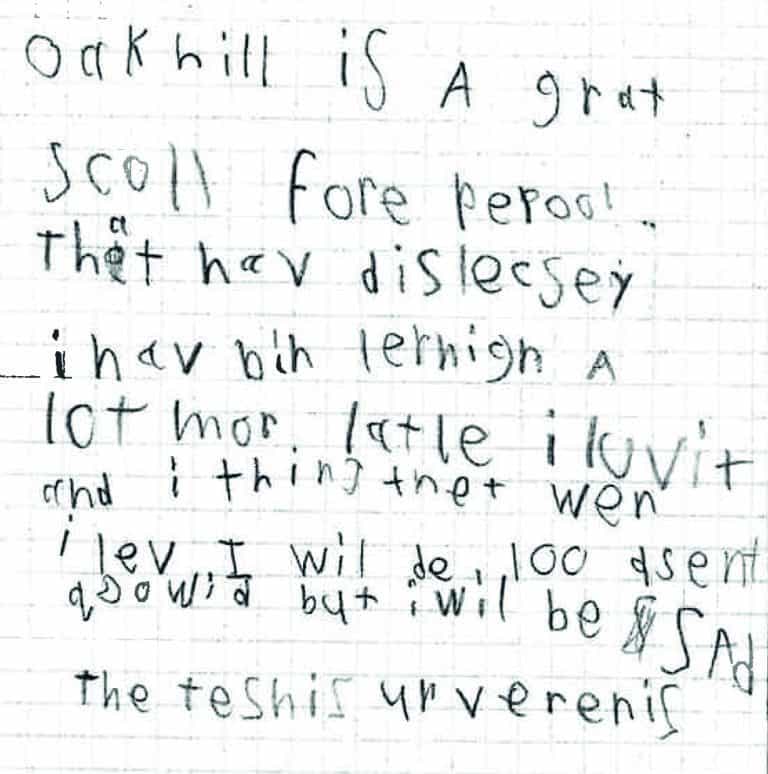 oakhill is A grat
scoll fore pepool.
that hav dislecsey
i hav bin lernign A
lot mor latle i luvit
and i thing thet wen
i lev I wil de 100 asent
qoowid but i wil be SAd
the teshis ur verenis